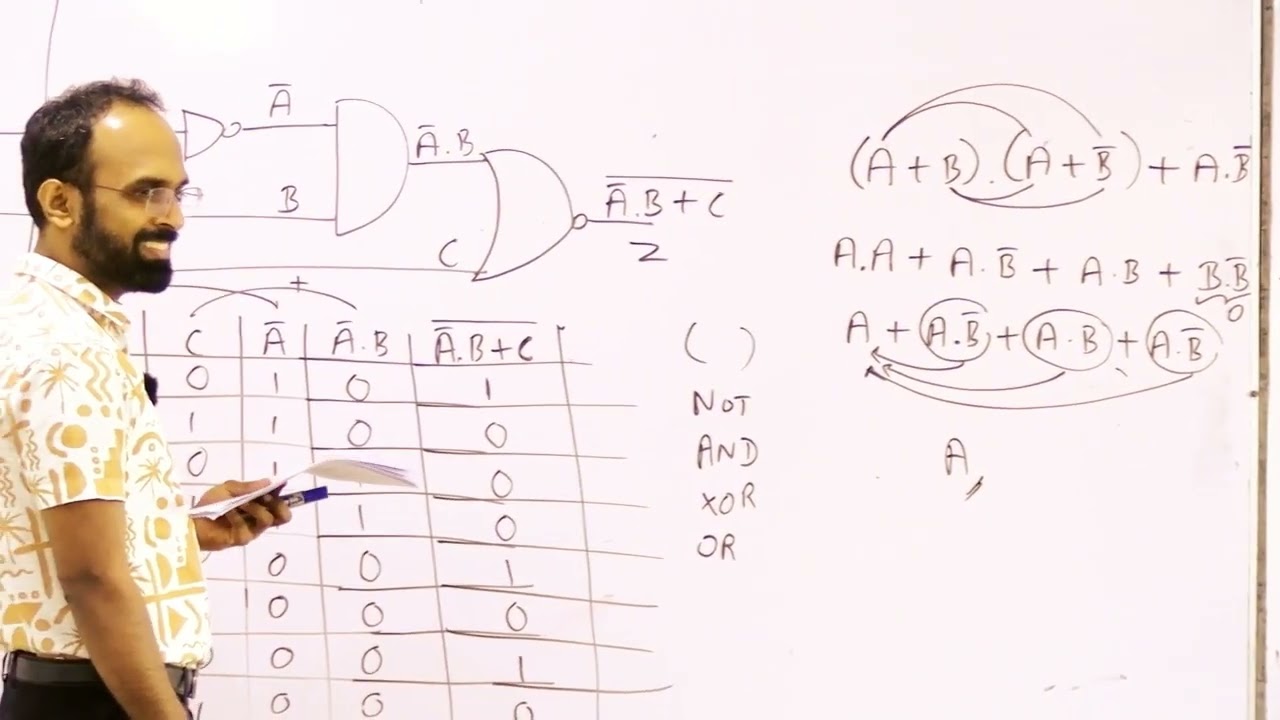 A̅
A̅.B
B
C
\overline{A̅.B+C}
Z
+
C A̅ A̅.B \overline{A̅.B+C}
0 1 0 1
1 1 0 0
0 1 0
1 0
0 0 1
0 0 0
0 0 1
0 0 0
( )
NOT
AND
XOR
OR
(A+B).(A+B̅)+A.B̅
A.A+A.B̅+A.B+B.B̅
0
A+A.B̅+A.B+A.B̅
A,